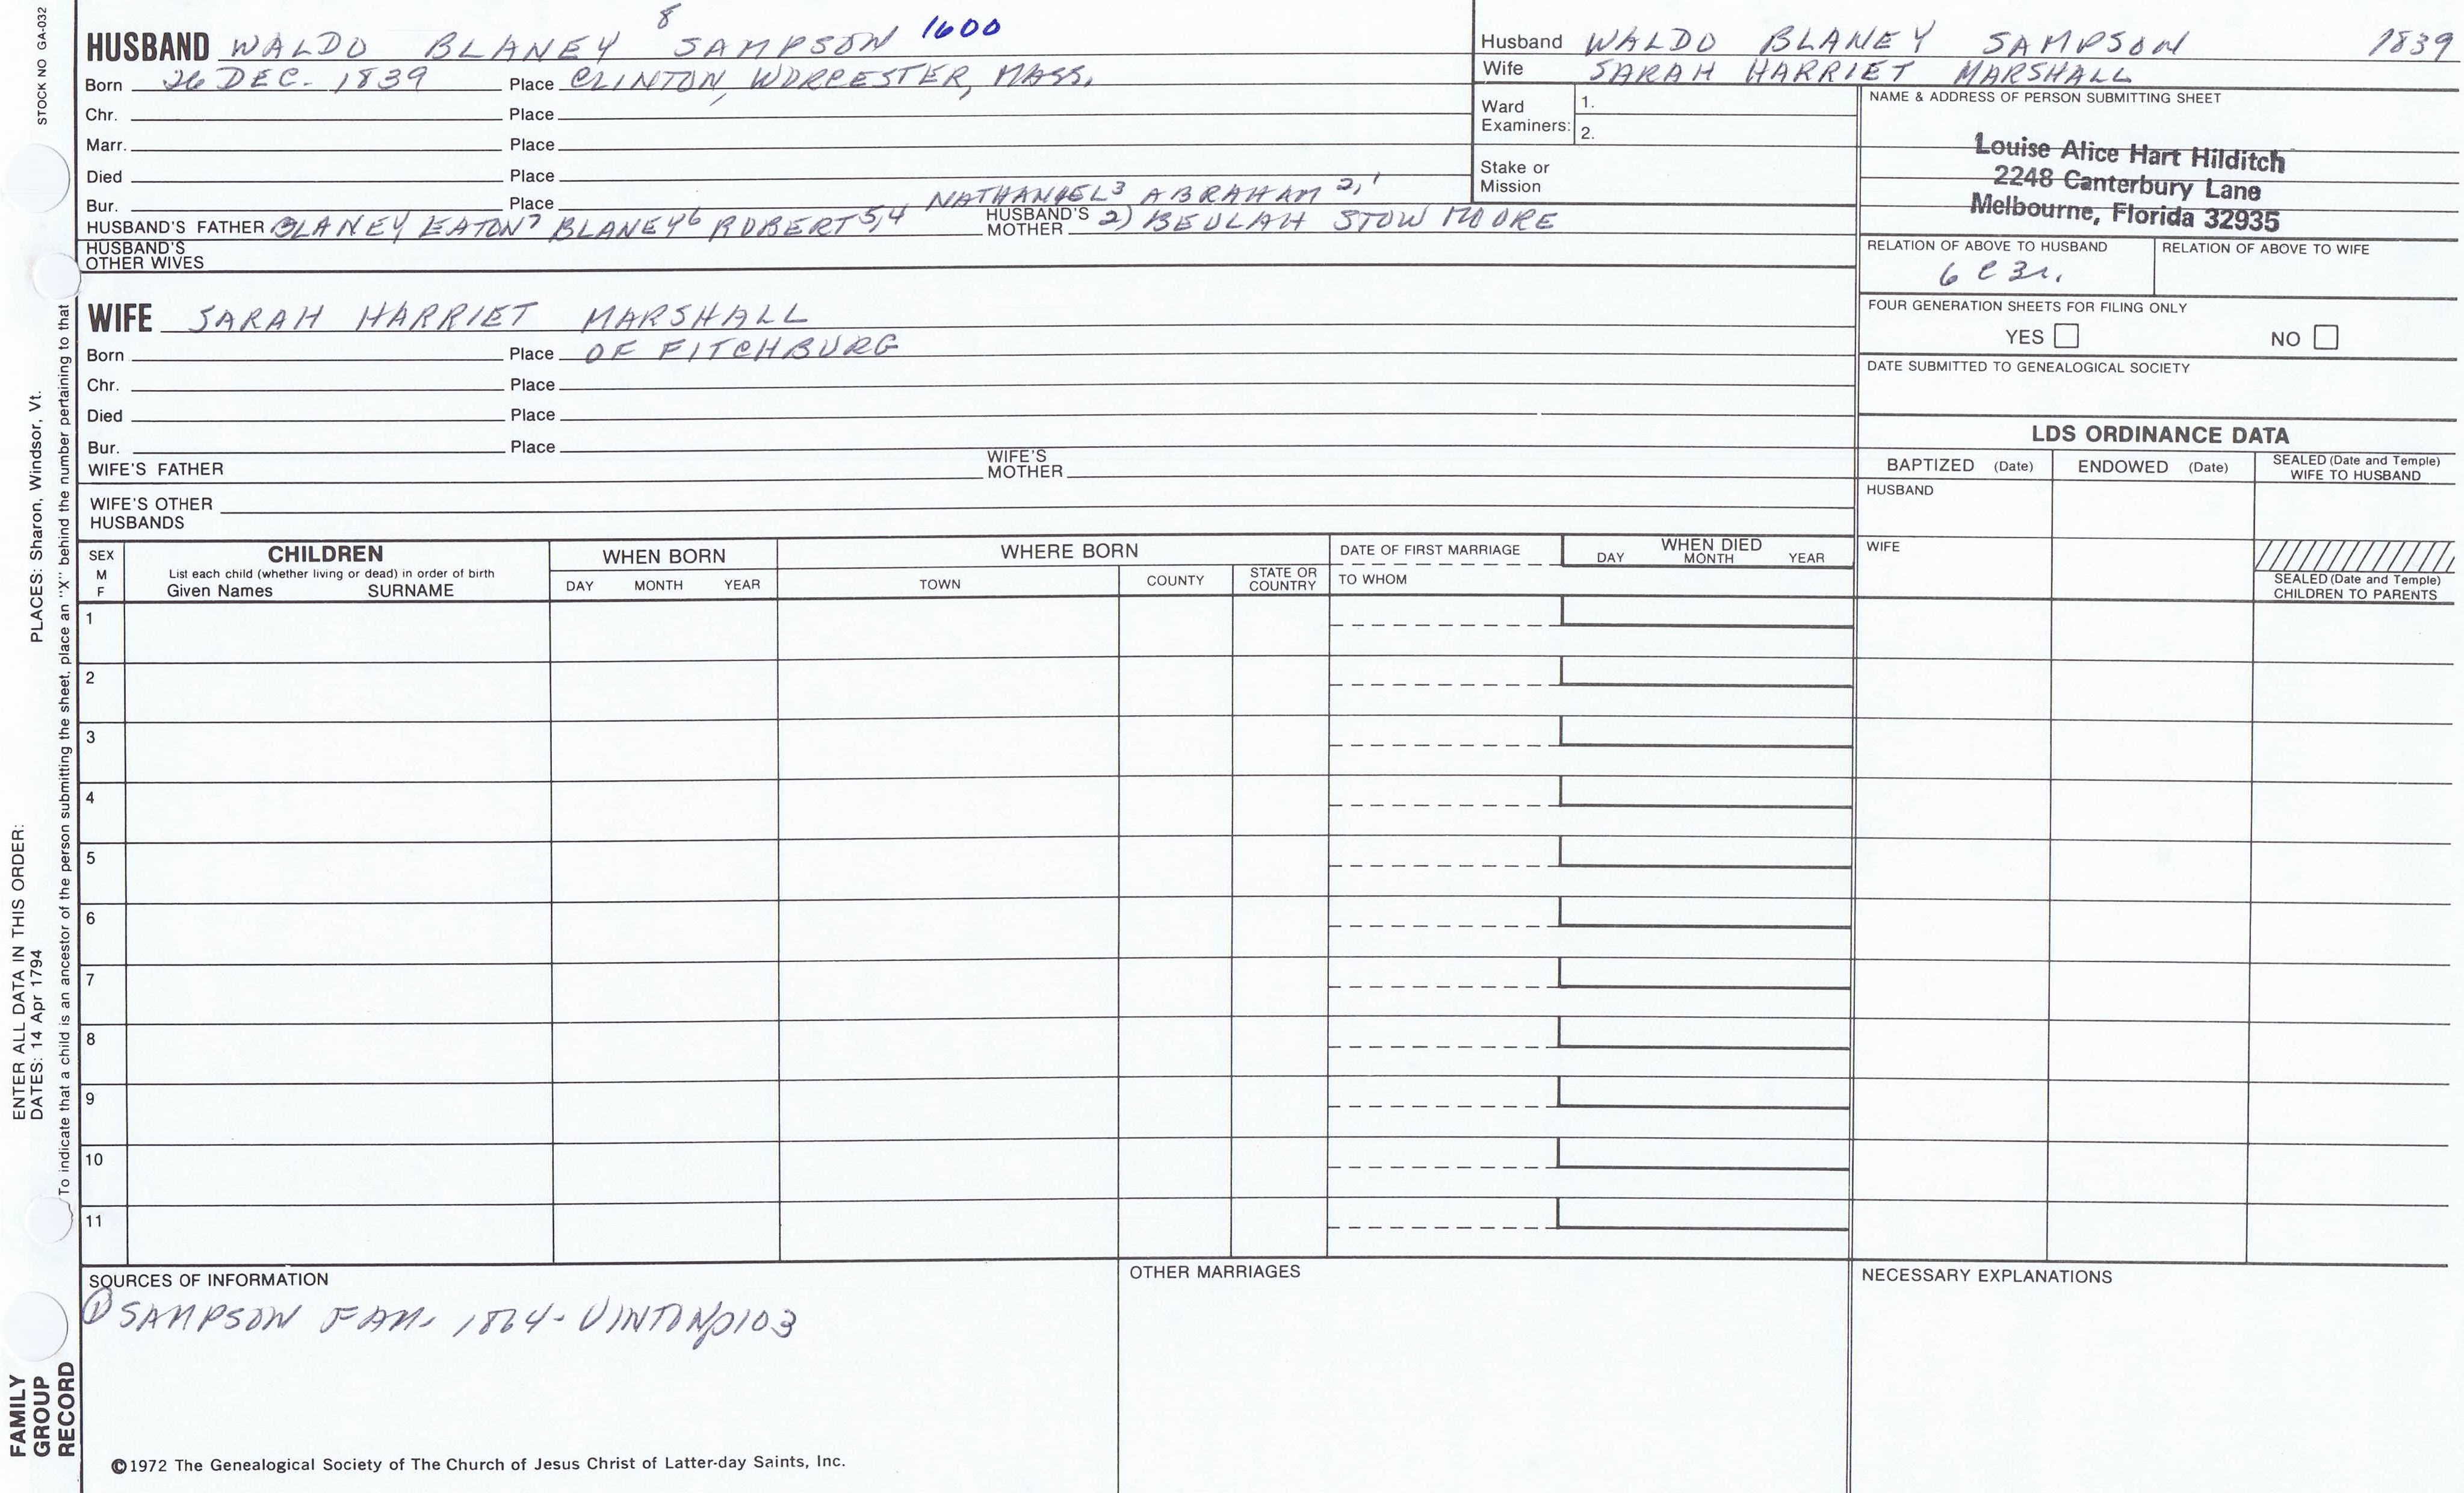 STOCK NO GA-032
PLACES: Sharon, Windsor, Vt.
ENTER ALL DATA IN THIS ORDER:
DATES: 14 Apr 1794
To indicate that a child is an ancestor of the person submitting the sheet, place an "X" behind the number pertaining to that
FAMILY
GROUP
RECORD
8
HUSBAND WALDO BLANEY SAMPSON 1600
Born 26 DEC. 1839 Place CLINTON, WORCESTER, MASS.
Chr. Place
Marr. Place
Died Place
Bur. Place NATHANAEL3 ABRAHAM 2,1
HUSBAND'S FATHER BLANEY EATON7 BLANEY6 ROBERT5,4 HUSBAND'S MOTHER 2) BEULAH STOW MOORE
HUSBAND'S
OTHER WIVES
WIFE SARAH HARRIET MARSHALL
Born Place OF FITCHBURG
Chr. Place
Died Place
Bur. Place
WIFE'S FATHER WIFE'S MOTHER
WIFE'S OTHER
HUSBANDS
Husband WALDO BLANEY SAMPSON 1839
Wife SARAH HARRIET MARSHALL
Ward Examiners: 1.
2.
Stake or
Mission
NAME & ADDRESS OF PERSON SUBMITTING SHEET
Louise Alice Hart Hilditch
2248 Canterbury Lane
Melbourne, Florida 32935
RELATION OF ABOVE TO HUSBAND RELATION OF ABOVE TO WIFE
6 C 3r.
FOUR GENERATION SHEETS FOR FILING ONLY
YES NO
DATE SUBMITTED TO GENEALOGICAL SOCIETY
LDS ORDINANCE DATA
BAPTIZED (Date) ENDOWED (Date) SEALED (Date and Temple) WIFE TO HUSBAND
HUSBAND
WIFE
SEALED (Date and Temple)
CHILDREN TO PARENTS
SEX
M
F
CHILDREN
List each child (whether living or dead) in order of birth
Given Names SURNAME
WHEN BORN
DAY MONTH YEAR
WHERE BORN
TOWN COUNTY STATE OR COUNTRY
DATE OF FIRST MARRIAGE
TO WHOM
WHEN DIED
DAY MONTH YEAR
1
2
3
4
5
6
7
8
9
10
11
SOURCES OF INFORMATION
① SAMPSON FAM. 1864 - VINTON p103
OTHER MARRIAGES
NECESSARY EXPLANATIONS
©1972 The Genealogical Society of The Church of Jesus Christ of Latter-day Saints, Inc.